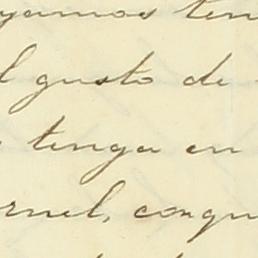 yamos ten
l gusto de
tenga en
rnel, conqu